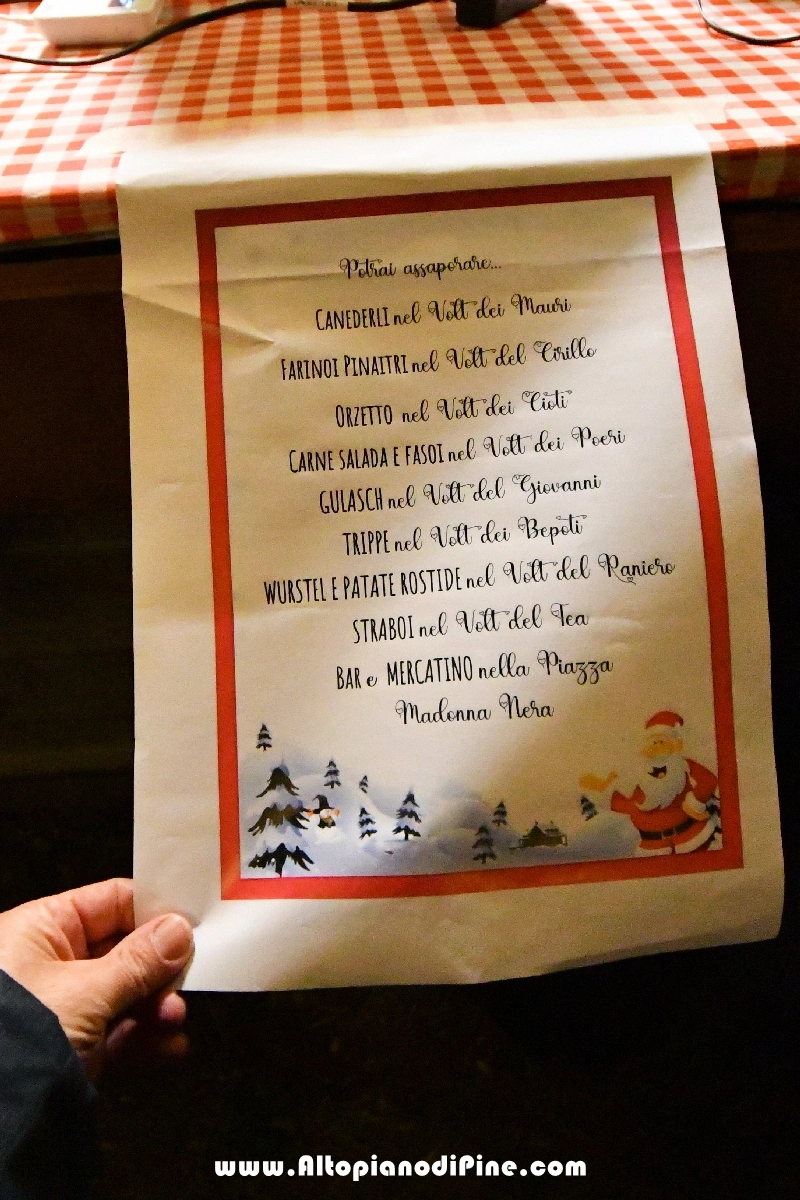 Potrai assaporare...
CANEDERLI nel Volt dei Mauri
FARINOI PINAITRI nel Volt del Cirillo
ORZETTO nel Volt dei Cioti
CARNE SALADA E FASOI nel Volt dei Poeri
GULASCH nel Volt del Giovanni
TRIPPE nel Volt dei Bepoti
WURSTEL E PATATE ROSTIDE nel Volt del Raniero
STRABOI nel Volt del Tea
BAR e MERCATINO nella Piazza
Madonna Nera
www.AltopianodiPine.com